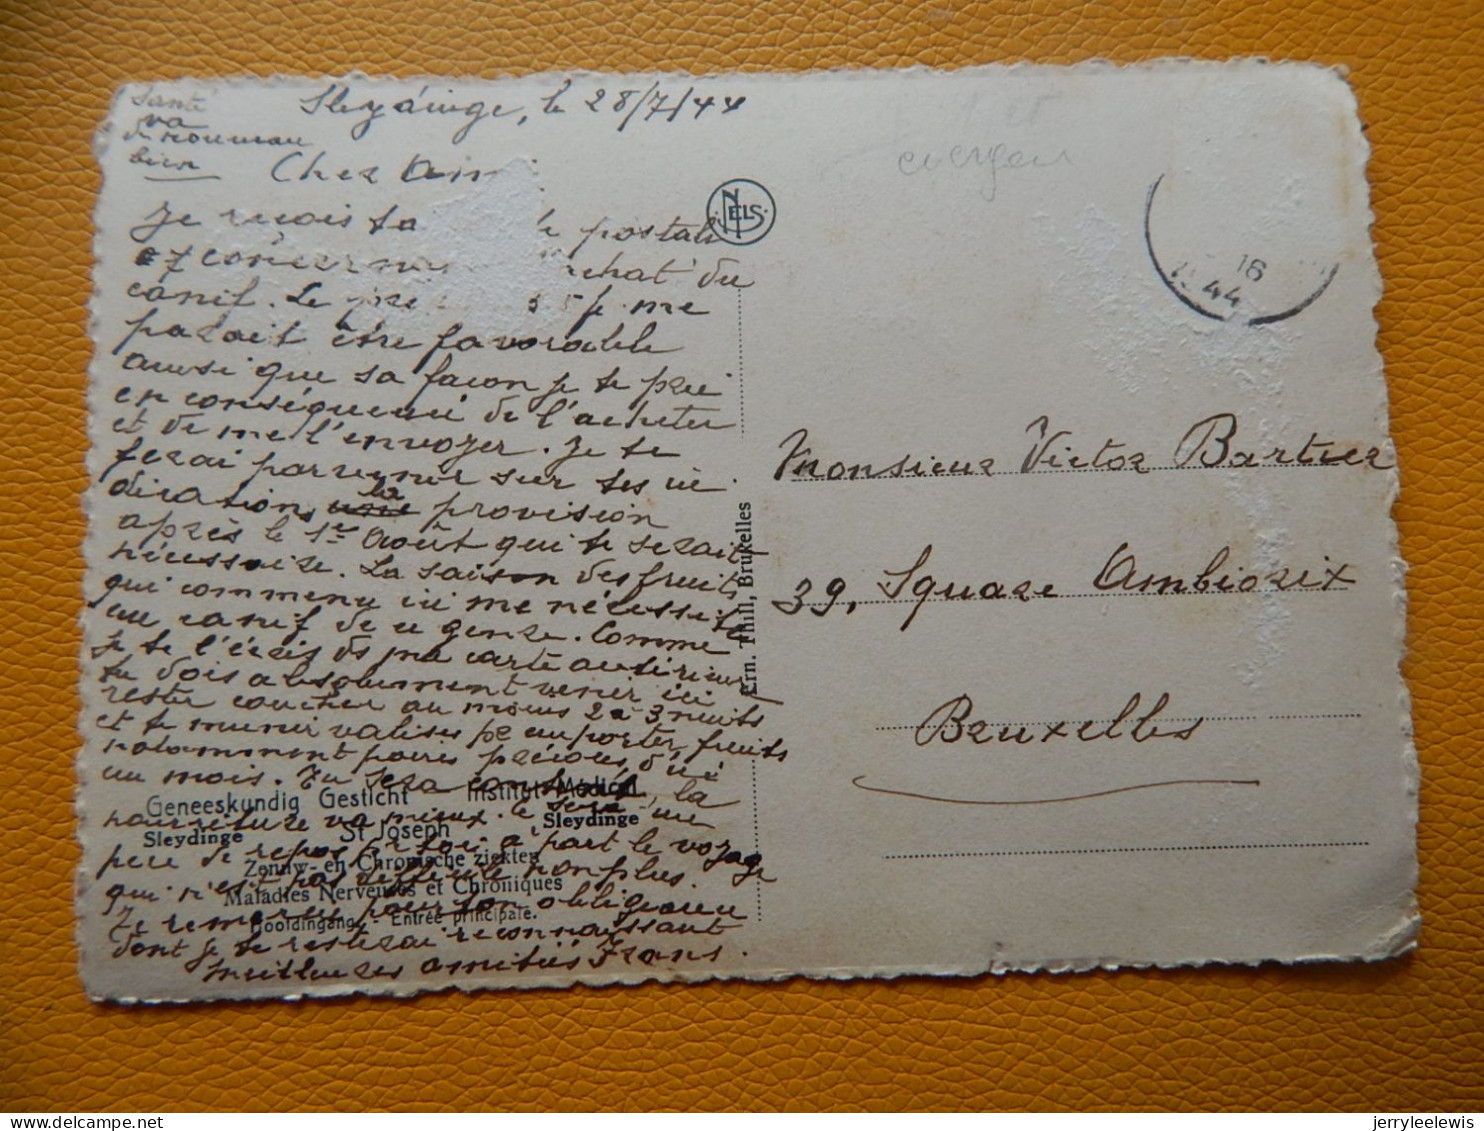 Santé
va
de nouveau
bien
Sleydinge, le 28/7/44
Cher Ami
Je reçois ta postale
et concernant achat du
canif. Le me
parait être favorable
aussi que sa façon je te prie
en conséquence de l'acheter
et de me l'envoyer. Je te
ferai parvenir sur tes in
dications, la provision
après le 1er Août qui te serait
nécessaire. La saison des fruits
qui commence ici me nécessite
un canif de ce genre. Comme
je te l'écris ds ma carte antérieure
tu dois absolument venir ici
rester coucher au moins 2 à 3 nuits
et te munir valises pr emporter fruits
notamment poires d'ici
un mois. Tu sera la
nourriture va mieux. le sera un
peu de repos pr toi à part le voyage
qui n'est pas difficile non plus.
Je remercie pour ton obligeance
dont je te resterai reconnaissant
meilleures amitiés Frans.
Geneeskundig Gesticht Institut Médical
Sleydinge St Joseph Sleydinge
Zenuw- en Chronische ziekten
Maladies Nerveuses et Chroniques
Hoofdingang - Entrée principale.
NELS
Ern. Thill, Bruxelles
18
44
Monsieur Victor Bartier
39, Square Ambiorix
Bruxelles
jerryleelewis